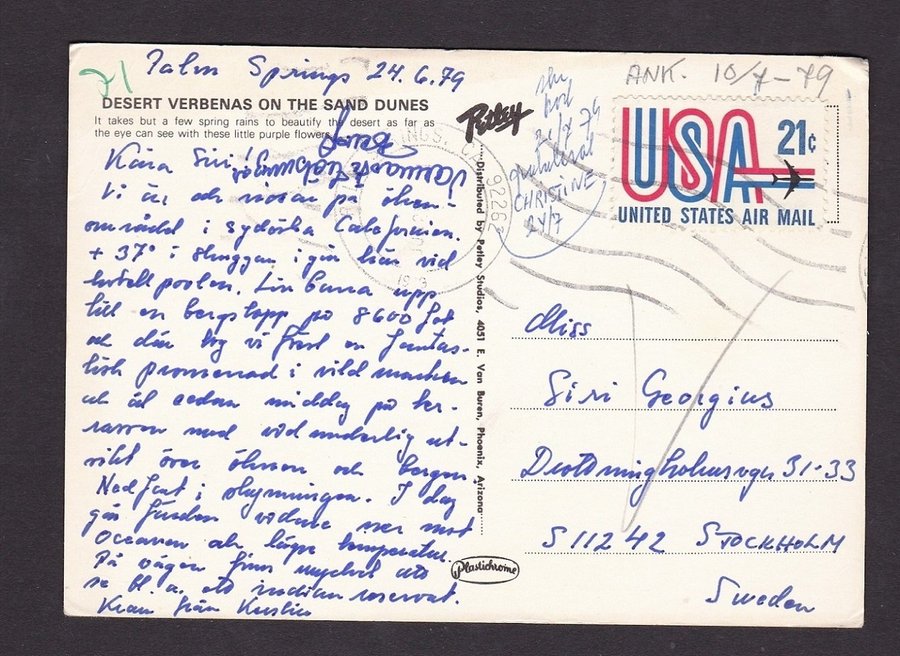 71
Palm Springs 24.6.79
DESERT VERBENAS ON THE SAND DUNES
It takes but a few spring rains to beautify the desert as far as
the eye can see with these little purple flowers.
Kära Siri!
Vi är och nosar på öken-
området i sydöstra Californien.
+ 37° i skuggan i går här vid
hotellpoolen. Linbana upp
till en bergstopp på 8600 fot
och där tog vi först en fantas-
tisk promenad i vildmarken
och åt sedan middag på ter-
rassen med vidunderlig ut-
sikt över öknen och bergen
Nedfart i skymningen. I dag
går färden vidare ner mot
Oceanen och lägre temperatur.
På vägen finns mycket att
se bl. a. ett indianreservat.
Kram från Kerstin
Petley
Distributed by Petley Studios, 4051 E. Van Buren, Phoenix, Arizona
Plastichrome
92262
26/7 79
CHRISTINE
24/7
ANK. 10/7-79
USA 21¢
UNITED STATES AIR MAIL
Miss
Siri Georgius
Drottningholmsvägen 31-33
S 112 42 STOCKHOLM
Sweden